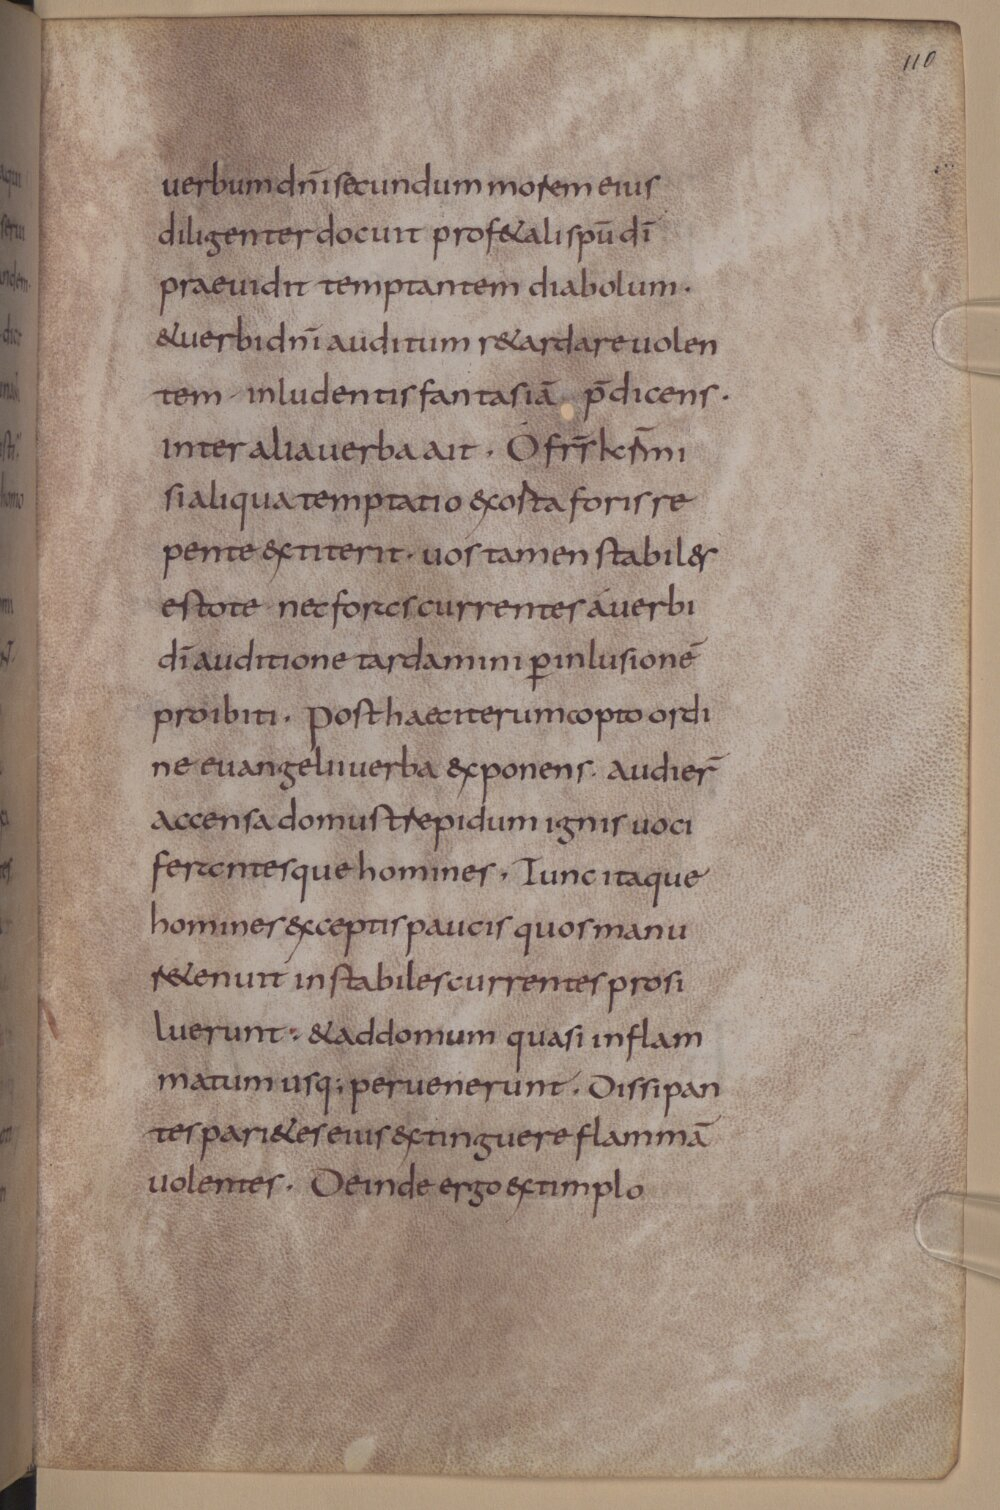 110
uerbum dn̄i secundum morem eius
diligenter docuit prof&ali spū dī
praeuidit temptantem diabolum·
&uerbi dnī auditum r&ardare uolen
tem· inludentis fantasiā p̄dicens·
inter alia uerba ait· O fr̄r̄ kr̄mi
si aliqua temptatio &xosta foris re
pente &xtiterit· uos tamen stabil&s
estote nec foras currentes á uerbi
dī auditione tardamini ꝑ inlusionē
proibiti· Post haec iterum copto ordi
ne euangelii uerba &xponens· audier̄
accensa domu strepidum ignis uoci
ferentesque homines· Tunc itaque
homines &xceptis paucis quos manu
r&enuit instabiles currentes prosi
luerunt· & ad domum quasi inflam
matum usq; peruenerunt· Dissipan
tes pari&es eius &xtinguere flammā
uolentes· Deinde ergo &xtimplo